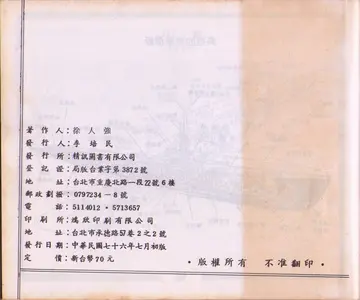 著作人:徐人強
發行人:李培民
發行所:精訊圖書有限公司
登記證:局版台業字第3872號
地址:台北市重慶北路一段22號6樓
郵政劃撥:0797234－8號
電話:5114012・5713657
印刷所:鴻欣印刷有限公司
地址:台北市承德路57巷2之2號
發行日期:中華民國七十六年七月初版
定價:新台幣70元
・版權所有 不准翻印・